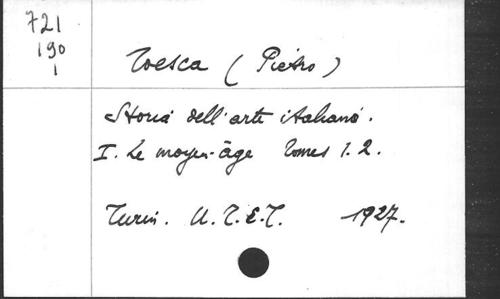 721
190
1
Toesca (Pietro)
Storia dell'arte italiana.
I. Le moyen-âge Tomes 1.2.
Turin. U.T.E.T. 1927.